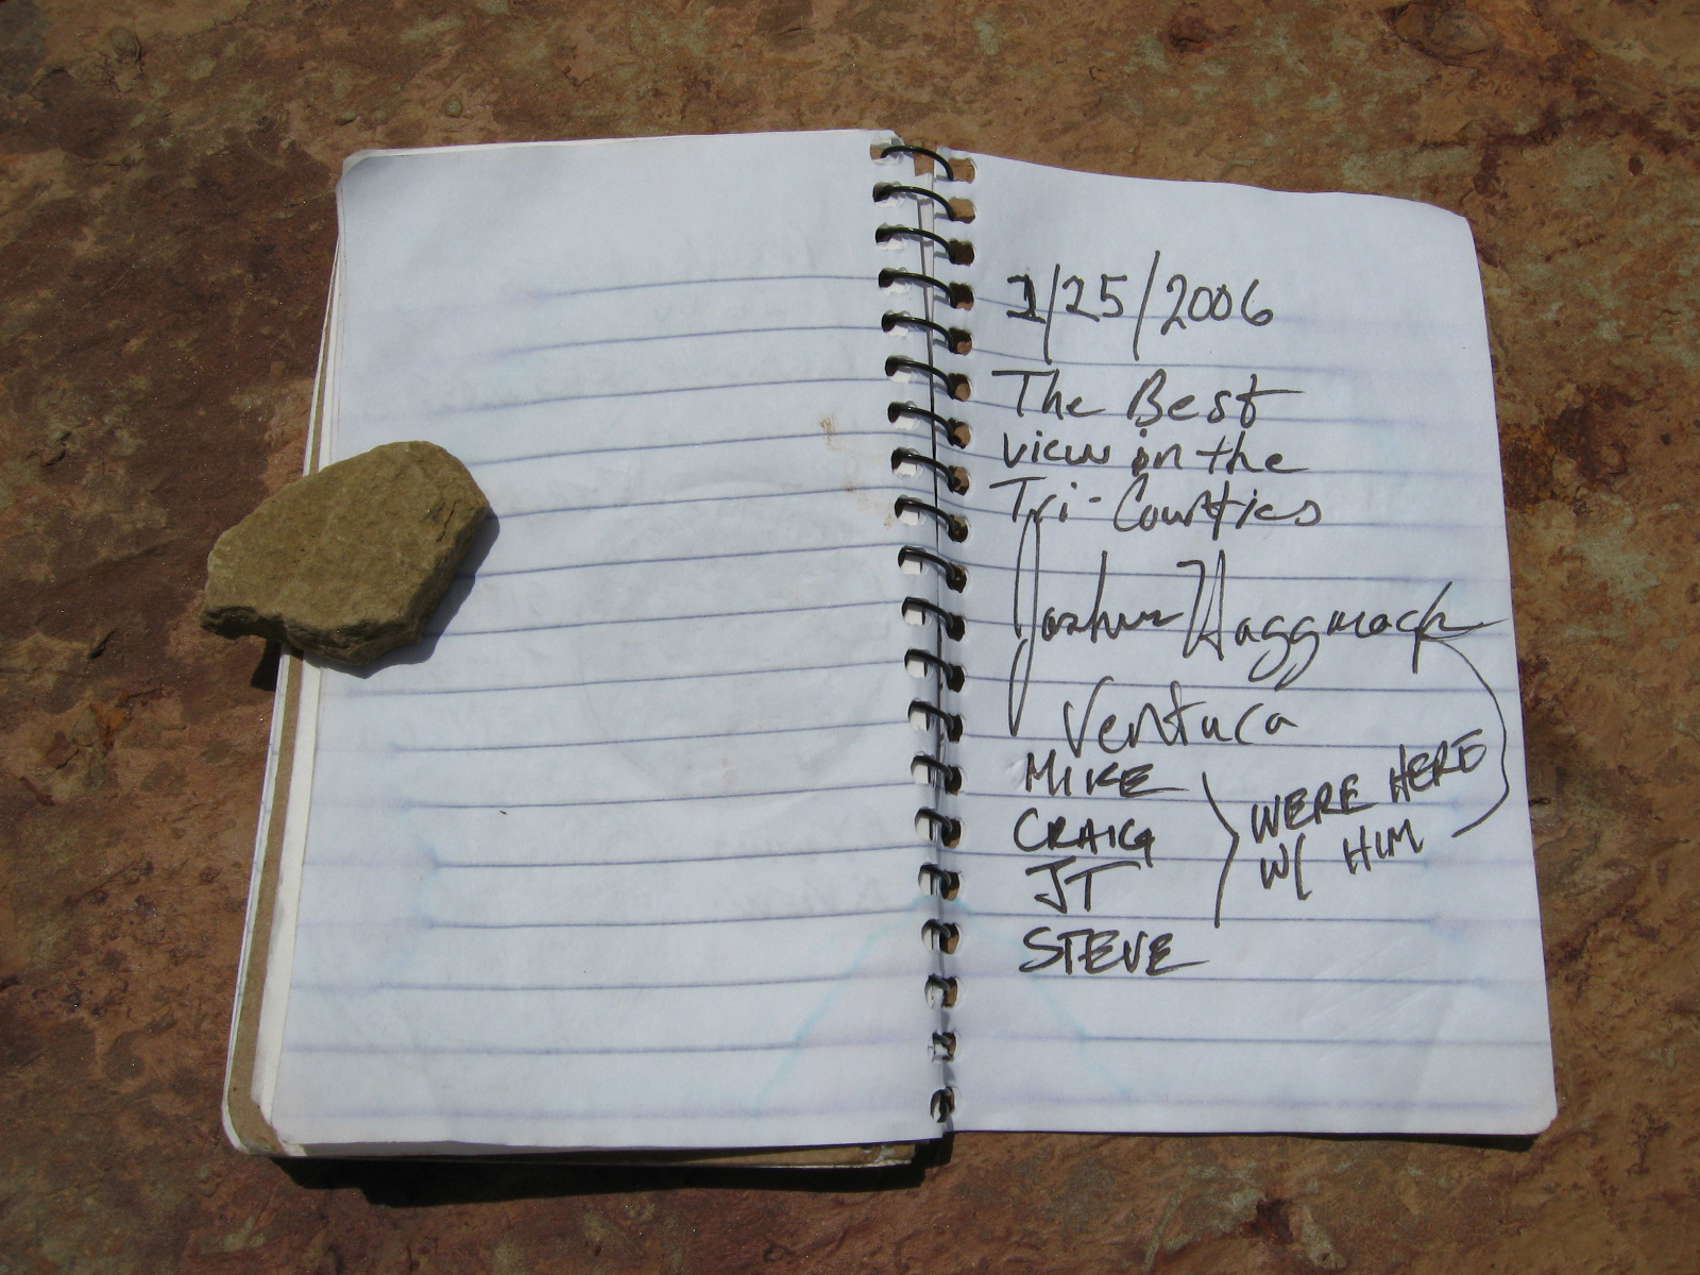 1/25/2006
The Best
view in the
Tri-Counties
Joshua Haggmark
Ventura
MIKE
CRAIG
JT
STEVE
WERE HERE
W/ HIM